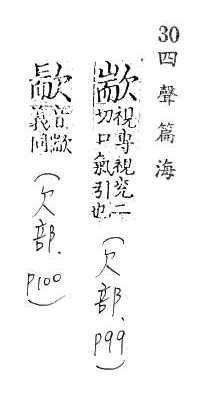 30四聲篇海
歂祝專視兖二切口氣引也(欠部. P99)
音歂義同(欠部. P100)